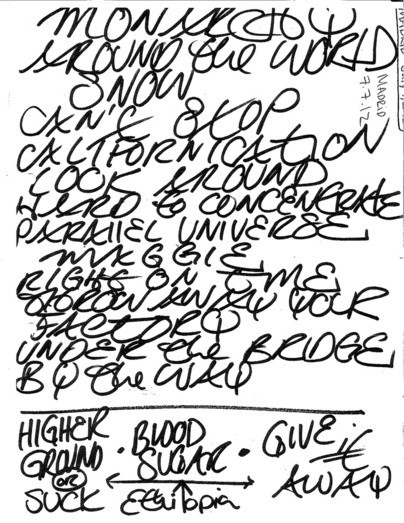 MONARCHY
AROUND the WORLD
SNOW
CAN'T STOP
CALIFORNICATION
LOOK AROUND
HARD to CONCENTRATE
PARALLEL UNIVERSE
MAGGIE
RIGHT ON TIME
THROW AWAY YOUR
FACTORY
UNDER the BRIDGE
BY the WAY
HIGHER GROUND OR SUCK
• BLOOD SUGAR •
Ethiopia
GIVE it AWAY
MADRID
7.7.12